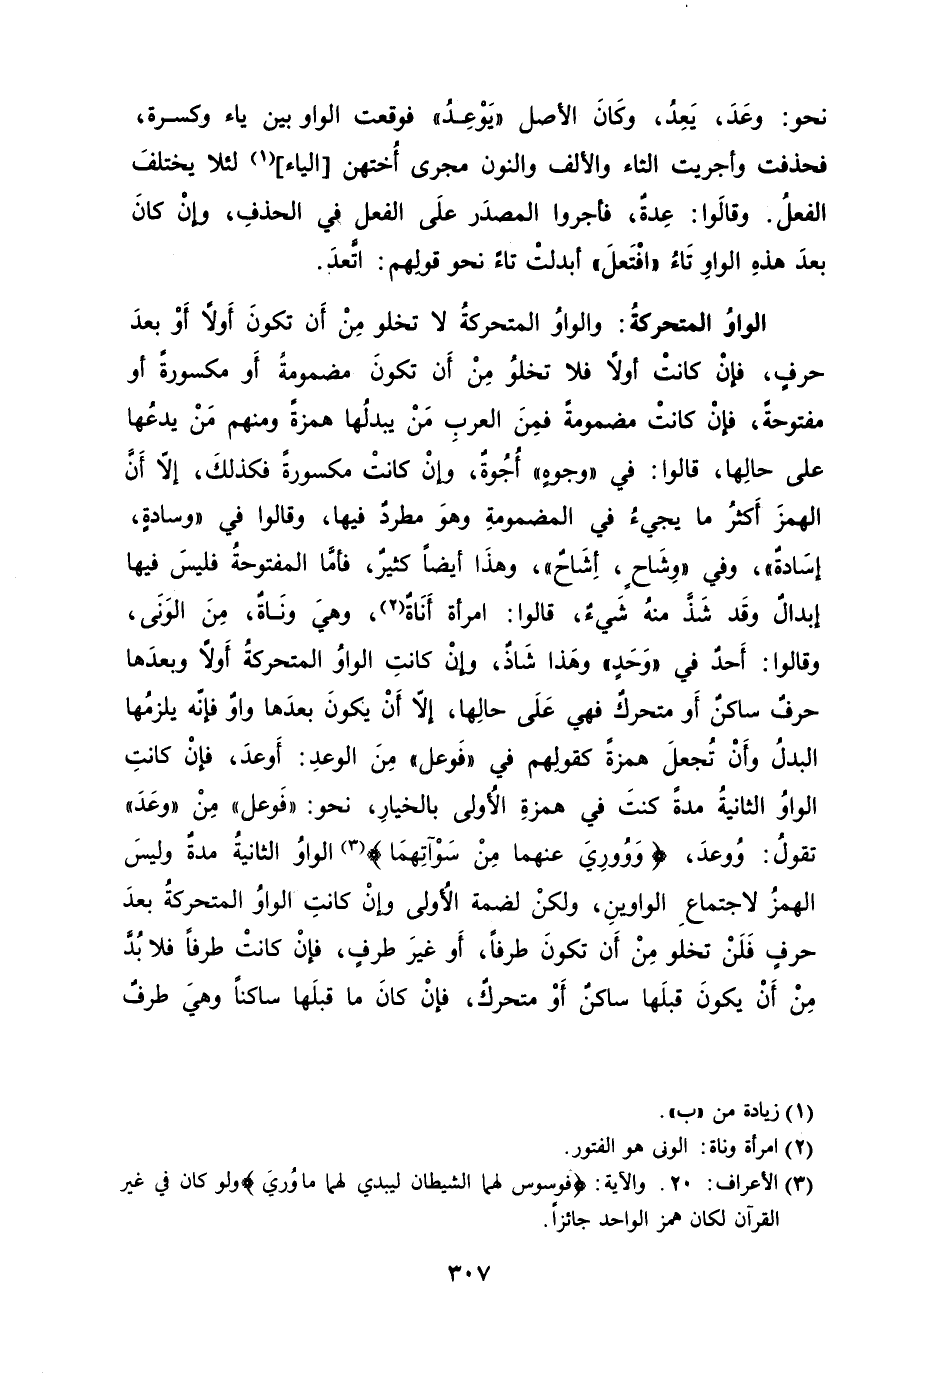 نحو: وعَدَ، يَعِدُ، وكَانَ الأصل «يَوْعِـدُ» فوقعت الواو بين ياء وكسـرة،
فحذفت وأجريت التاء والألف والنون مجرى أُختهن [الياء](١) لئلا يختلفَ
الفعلُ. وقالَوا: عِدةٌ، فأجروا المصدَر علَى الفعل فِي الحذفِ، وإنْ كانَ
بعدَ هذهِ الواوِ تَاءُ «افْتَعلَ» أبدلتْ تاءً نحو قولِهم: اتَّعدَ.
الواوُ المتحركةُ: والواوُ المتحركةُ لا تخلو مِنْ أَن تكونَ أَولاً أَوْ بعدَ
حرفٍ، فإنْ كانتْ أولاً فلا تخلوُ مِنْ أَن تكونَ مضمومةُ أَو مكسورةً أو
مفتوحةً، فإنْ كانتْ مضمومةً فمِنَ العربِ مَنْ يبدلُها همزةً ومنهم مَنْ يدعُها
على حالِها، قالوا: في «وجوهٍ» أُجُوةٌ، وإنْ كانتْ مكسورةً فكذلكَ، إلّا أنَّ
الهمزَ أَكثرُ ما يجيءُ في المضمومةِ وهوَ مطردٌ فيها، وقالوا في «وسادةٍ،
إسَادةٌ»، وفي «وِشَاحٍ، أِشَاحٌ»، وهذَا أيضاً كثيرٌ، فأمَّا المفتوحةُ فليسَ فيها
إبدالٌ وقَد شَذَّ منهُ شَيءٌ، قالوا: امرأة أَنَاةٌ(٢)، وهيَ ونَـاةٌ، مِنَ الوَنَى،
وقالوا: أَحدٌ في «وَحَدٍ» وهَذا شَاذٌ، وإنْ كانتِ الواوُ المتحركةُ أَولاً وبعدَها
حرفٌ ساكنٌ أَو متحركٌ فهي عَلَى حالِها، إلّا أنْ يكونَ بعدَها واوٌ فإنّه يلزمُها
البدلُ وأَنْ تُجعلَ همزةً كقولِهم في «فَوعل» مِنَ الوعدِ: أَوعدَ، فإنْ كانتِ
الواوُ الثانيةُ مدةً كنتَ في همزةِ الأُولى بالخيارِ، نحو: «فَوعل» مِنْ «وعَدَ»
تقولُ: وُوعدَ، ﴿وَوُورِيَ عنهما مِنْ سَوْآتِهمَا﴾(٣) الواوُ الثانيةُ مدةٌ وليسَ
الهمزُ لاجتماعِ الواوينِ، ولكنْ لضمة الأُولى وإنْ كانتِ الواوُ المتحركةُ بعدَ
حرفٍ فَلَنْ تخلو مِنْ أَن تكونَ طرفاً، أَو غيرَ طرفٍ، فإنْ كانتْ طرفاً فلا بُدَّ
مِنْ أَنْ يكونَ قبلَها ساكنٌ أَوْ متحركٌ، فإنْ كانَ ما قبلَها ساكناً وهيَ طرفٌ
(١) زيادة من «ب».
(٢) امرأة وناة: الونى هو الفتور.
(٣) الأعراف: ٢٠. والآية: ﴿فوسوس لهما الشيطان ليبدي لهما ما وُريَ﴾ ولو كان في غير
القرآن لكان همز الواحد جائزاً.
٣٠٧